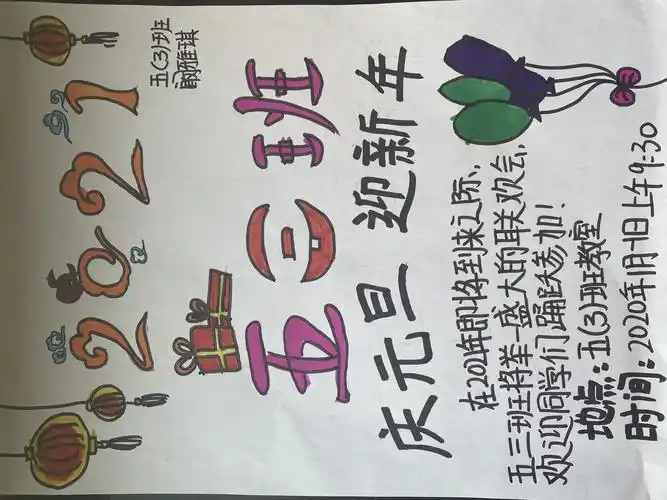 2021
五(3)班
雅琪
五三班
庆元旦 迎新年
在2021年即将到来之际,
五三班将举 盛大的联欢会,
欢迎同学们踊跃参加!
地点:五(3)班教室
时间:2020年1月1日上午9:30